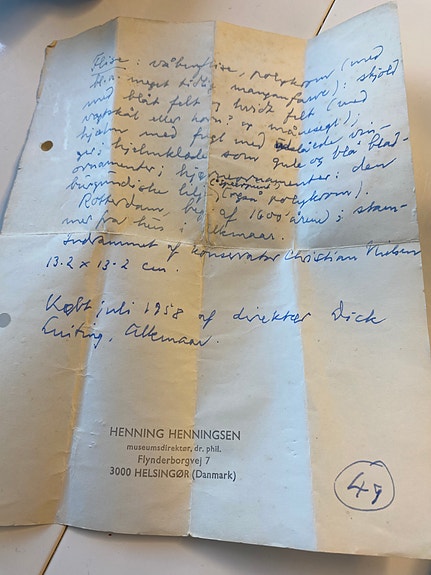 Flise: våbenflise, polykrom (med
bl.a. meget tidlig manganfarve): skjold
med blåt felt og hvidt felt (med
vægtskål eller horn? og månesegl);
hjælm med fugl med udbredte vin-
ger; hjelmklæde som gule og blå blad-
ornamenter; hjørneornamenter: den
burgundiske lilje (også polykrom).
Rotterdam, beg. af 1600-årene; stam-
mer fra hus i Alkmaar.
Indrammet af konservator Christian Nielsen
13.2 x 13.2 cm.
Købt juli 1958 af direktør Dick
Luiting, Alkmaar.
HENNING HENNINGSEN
museumsdirektør, dr. phil.
Flynderborgvej 7
3000 HELSINGØR (Danmark)
49